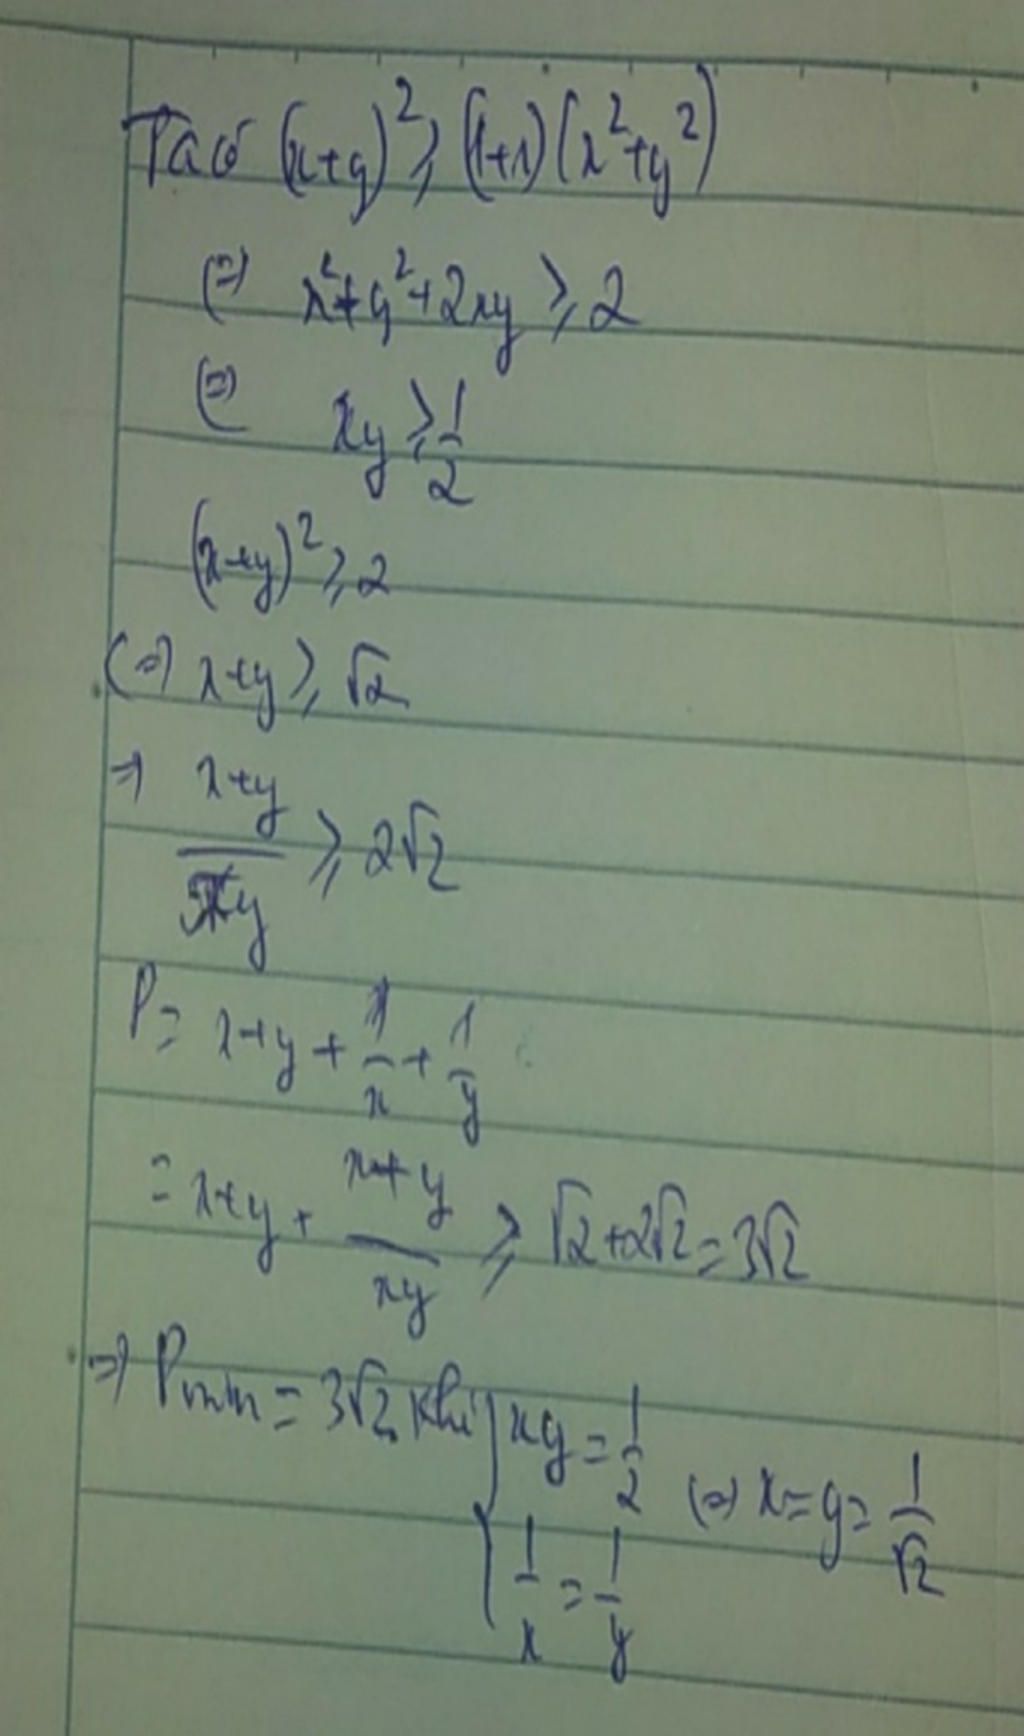 Ta có (x+y)² ≥ (1+1)(x²+y²)
(=) x²+y²+2xy ≥ 2
(=) xy ≥ 1/2
(x+y)² ≥ 2
(=) x+y ≥ √2
=) (x+y)/(xy) ≥ 2√2
P = x+y + 1/x + 1/y
= x+y + (x+y)/(xy) ≥ √2+2√2 = 3√2
=) Pmin = 3√2 khi { xy = 1/2 ; 1/x = 1/y (=) x=y= 1/√2